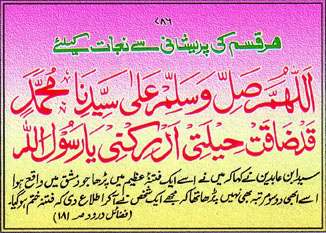 ٧٨٦
هر قسم کی پریشانی سے نجات کیلئے
اللهم صل وسلم على سيدنا محمد
قد ضاقت حيلتي ادركني يا رسول الله
سید ابن عابدین نے کہا کہ میں نے اسے ایک فتنۂ عظیم میں پڑھا جو دمشق میں واقع ہوا
اسے ابھی دو سو مرتبہ بھی نہیں پڑھا تھا کہ مجھے ایک شخص نے آکر اطلاع دی کہ فتنہ ختم ہوگیا۔
(فضائل درود صـ ١٨١)